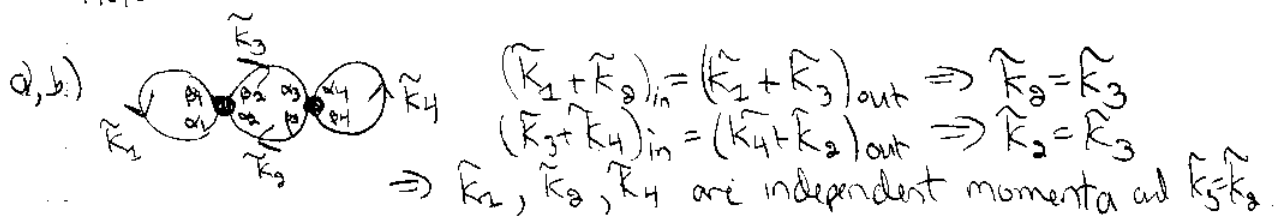 k̃₃
a,b.) k̃₁ β₁ α₁ β₂ α₂ α₃ β₃ α₄ β₄ k̃₄ (k̃₁+k̃₂)in = (k̃₁+k̃₃)out ⇒ k̃₂=k̃₃
k̃₂ (k̃₃+k̃₄)in = (k̃₄+k̃₂)out ⇒ k̃₂=k̃₃
⇒ k̃₁, k̃₂, k̃₄ are independent momenta and k̃₃=k̃₂.